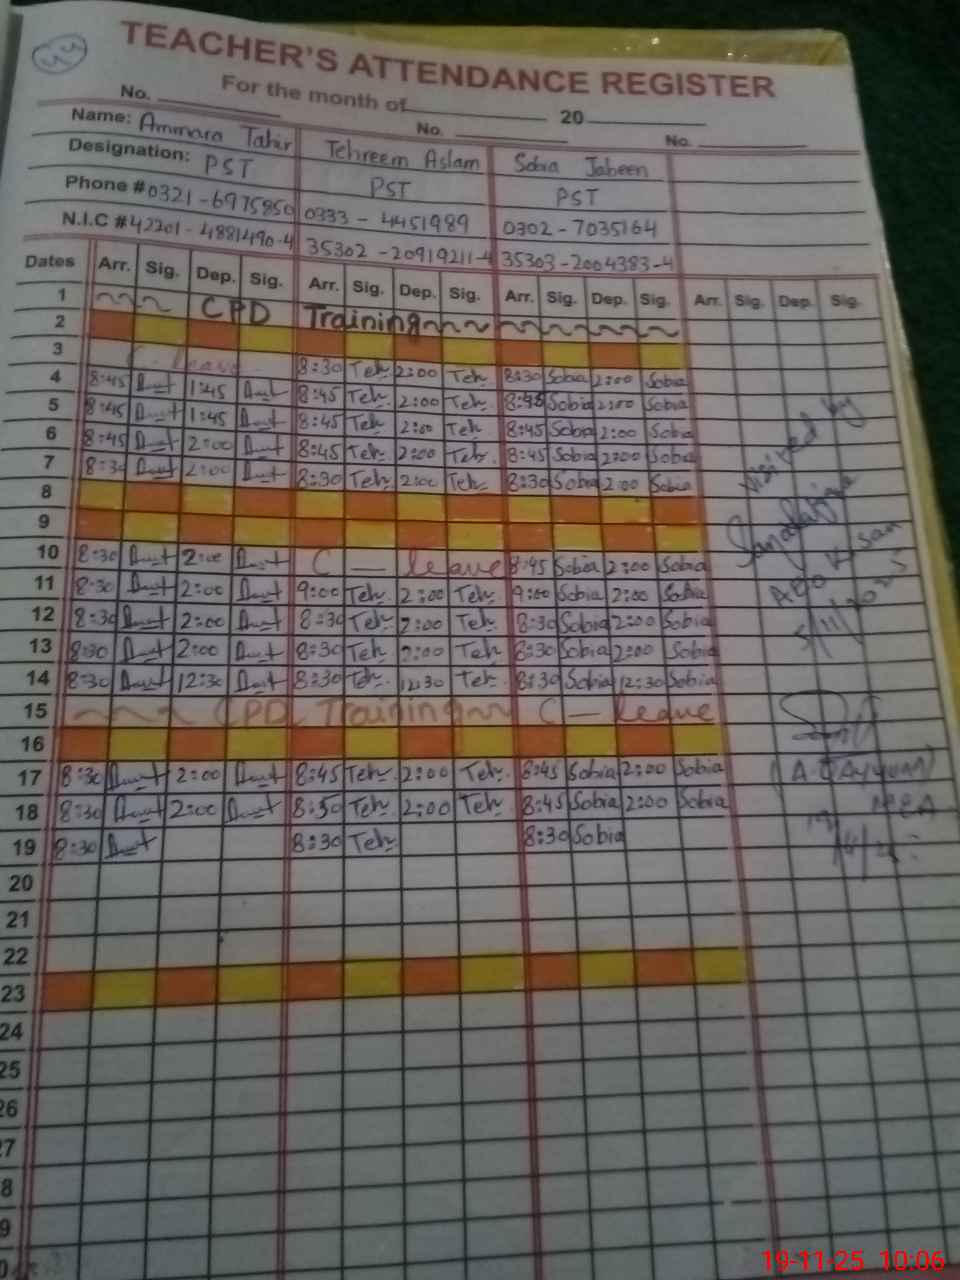 TEACHER'S ATTENDANCE REGISTER
For the month of 20
No. No. No.
Name: Ammara Tahir Tehreem Aslam Sobia Jabeen
Designation: PST PST PST
Phone # 0321-6975850 0333-4451989 0302-7035164
N.I.C # 42201-4881490-4 35302-20919211-4 35303-2004383-4
Dates Arr. Sig. Dep. Sig. Arr. Sig. Dep. Sig. Arr. Sig. Dep. Sig. Arr. Sig. Dep. Sig.
1 CPD Training
2
3 C-leave 8:30 Teh 2:00 Teh 8:30 Sobia 2:00 Sobia
4 8:45 1:45 8:45 Teh 2:00 Teh 8:45 Sobia 2:00 Sobia
5 8:45 1:45 8:45 Teh 2:00 Teh 8:45 Sobia 2:00 Sobia
6 8:45 2:00 8:45 Teh 2:00 Teh 8:45 Sobia 2:00 Sobia
7 8:30 2:00 8:30 Teh 2:00 Teh 8:30 Sobia 2:00 Sobia
8
9
10 8:30 2:00 C - leave 8:45 Sobia 2:00 Sobia
11 8:30 2:00 9:00 Teh 2:00 Teh 9:00 Sobia 2:00 Sobia
12 8:30 2:00 8:30 Teh 2:00 Teh 8:30 Sobia 2:00 Sobia
13 8:30 2:00 8:30 Teh 2:00 Teh 8:30 Sobia 2:00 Sobia
14 8:30 12:30 8:30 Teh 12:30 Teh 8:30 Sobia 12:30 Sobia
15 CPD Training C - leave
16
17 8:30 2:00 8:45 Teh 2:00 Teh 8:45 Sobia 2:00 Sobia
18 8:30 2:00 8:30 Teh 2:00 Teh 8:45 Sobia 2:00 Sobia
19 8:30 8:30 Teh 8:30 Sobia
20
21
22
23
24
25
26
27
8
9
0
Visited by
AEO
5/11/2025
(A-QAYYUM)
MEA
19-11-25 10:06